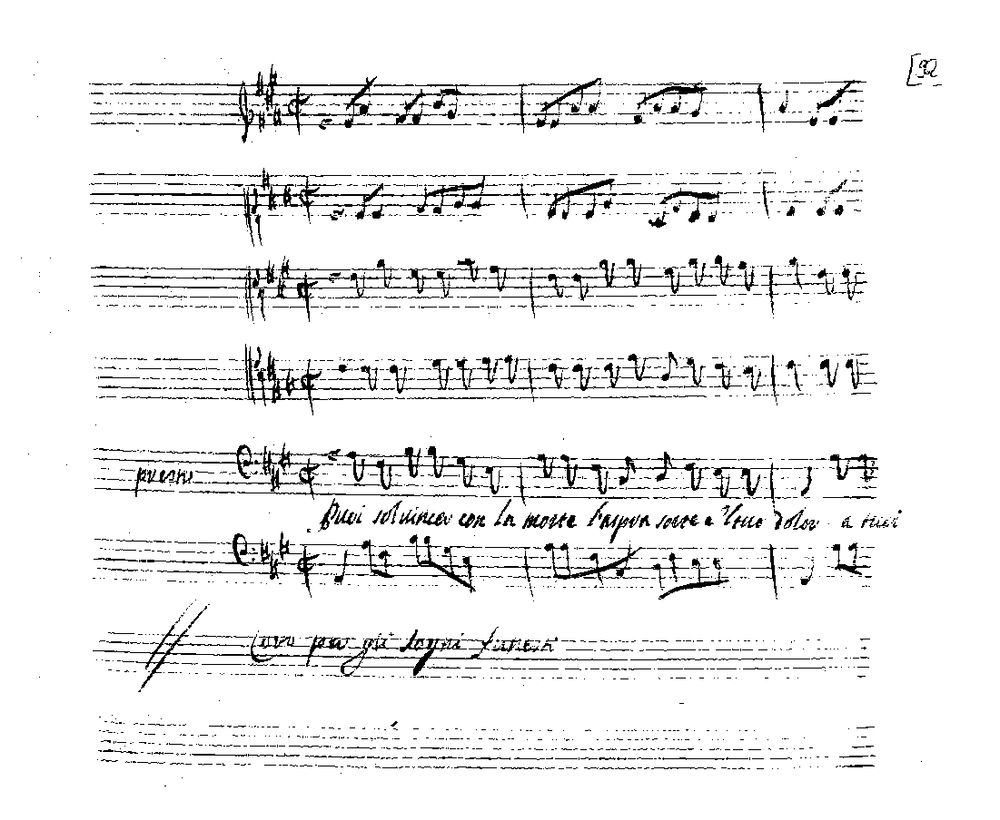 [92
presto
Puoi sol vincer con la morte l'aspra sorte e 'l tuo dolor a tuoi
Coro per gli sogni funesti